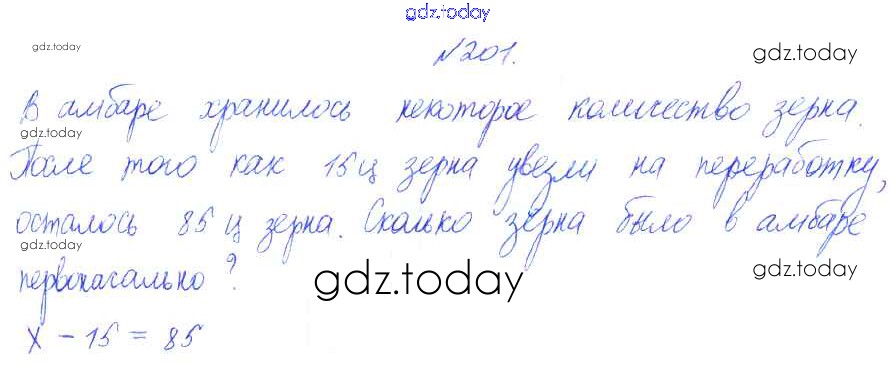 gdz.today
gdz.today
№201.
gdz.today
В амбаре хранилось некоторое количество зерна.
gdz.today
После того как 15 ц зерна увезли на переработку,
gdz.today
осталось 85 ц зерна. Сколько зерна было в амбаре
gdz.today
первоначально?
gdz.today
gdz.today
х - 15 = 85